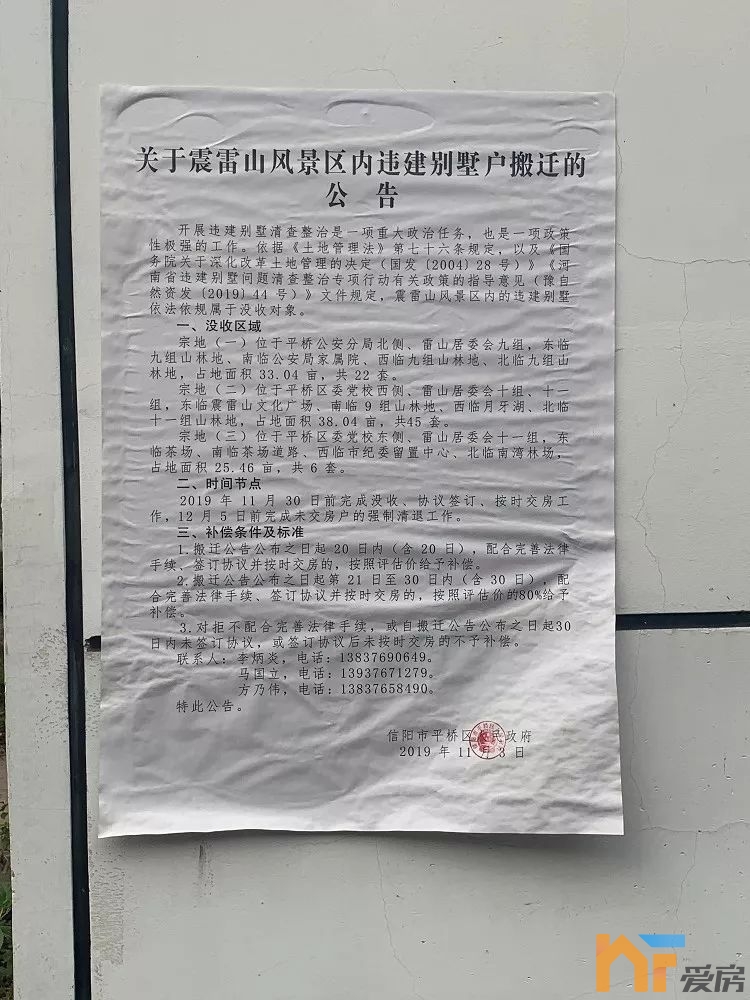 关于震雷山风景区内违建别墅户搬迁的
公 告
开展违建别墅清查整治是一项重大政治任务，也是一项政策
性极强的工作。依据《土地管理法》第七十六条规定，以及《国
务院关于深化改革土地管理的决定（国发〔2004〕28 号）》《河
南省违建别墅问题清查整治专项行动有关政策的指导意见（豫自
然资发〔2019〕44 号）》文件规定，震雷山风景区内的违建别墅
依法依规属于没收对象。
一、没收区域
宗地（一）位于平桥公安分局北侧、雷山居委会九组，东临
九组山林地、南临公安局家属院、西临九组山林地、北临九组山
林地，占地面积 33.04 亩，共 22 套。
宗地（二）位于平桥区委党校西侧、雷山居委会十组、十一
组，东临震雷山文化广场、南临 9 组山林地、西临月牙湖、北临
十一组山林地，占地面积 38.04 亩，共45 套。
宗地（三）位于平桥区委党校东侧、雷山居委会十一组，东
临茶场、南临茶场道路、西临市纪委留置中心、北临南湾林场，
占地面积 25.46 亩，共 6 套。
二、时间节点
2019 年 11 月 30 日前完成没收、协议签订、按时交房工
作，12 月 5 日前完成未交房户的强制清退工作。
三、补偿条件及标准
1.搬迁公告公布之日起 20 日内（含 20 日），配合完善法律
手续、签订协议并按时交房的，按照评估价给予补偿。
2.搬迁公告公布之日起第 21 日至 30 日内（含 30 日），配
合完善法律手续、签订协议并按时交房的，按照评估价的80%给予
补偿。
3.对拒不配合完善法律手续，或自搬迁公告公布之日起30
日内未签订协议，或签订协议后未按时交房的不予补偿。
联系人：李炳炎，电话：13837690649。
马国立，电话：13937671279。
方乃伟，电话：13837658490。
特此公告。
信阳市平桥区人民政府
2019 年 11 月 3 日
爱房